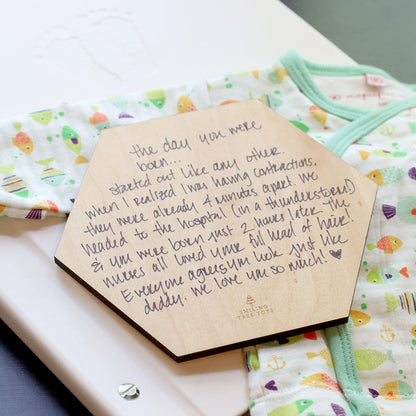 the day you were
born...
started out like any other.
when I realized I was having contractions,
they were already 4 minutes apart. We
headed to the hospital (in a thunderstorm!)
& you were born just 2 hours later. The
nurses all loved your full head of hair!
Everyone agrees you look just like
daddy. We love you so much! ♥
SMILING
TREE TOYS